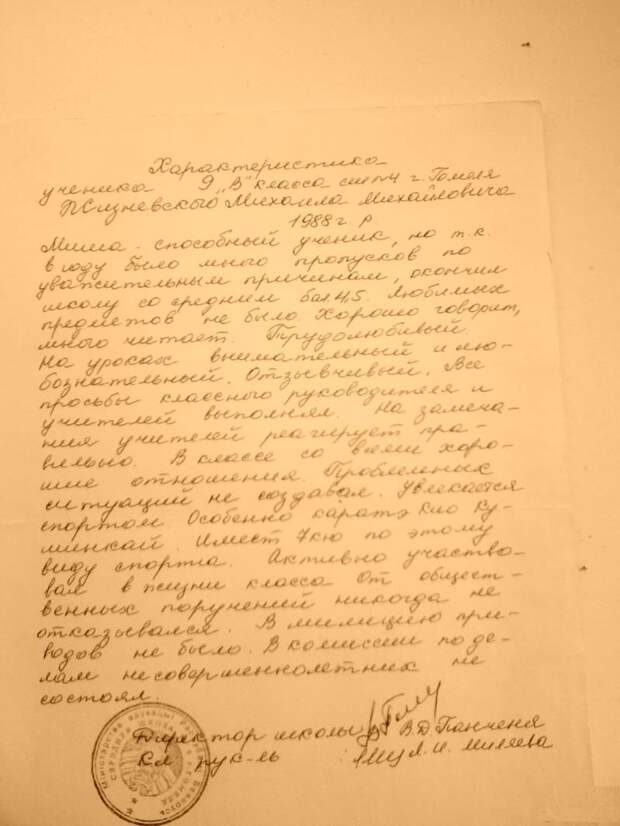 Характеристика
ученика 9 „В" класса сш №4 г. Гомеля
Михаила Михайловича
1988 г. р
Миша - способный ученик, но т.к.
в году было много пропусков по
уважительным причинам, окончил
школу со средним бал. 4,5. Любимых
предметов не было. Хорошо говорит,
много читает. Трудолюбивый.
На уроках внимательный и лю-
бознательный. Отзывчивый. Все
просьбы классного руководителя и
учителей выполнял. На замеча-
ния учителей реагирует пра-
вильно. В классе со всеми хоро-
шие отношения. Проблемных
ситуаций не создавал. Увлекается
спортом. Особенно каратэ кио ку-
шинкай. Имеет 7 кю по этому
виду спорта. Активно участво-
вал в жизни класса От общест-
венных поручений никогда не
отказывался. В милицию при-
водов не было. В комиссии по де-
лам несовершеннолетних не
состоял.
Директор школы В.Д Панченя
Кл рук-ль Л.И.